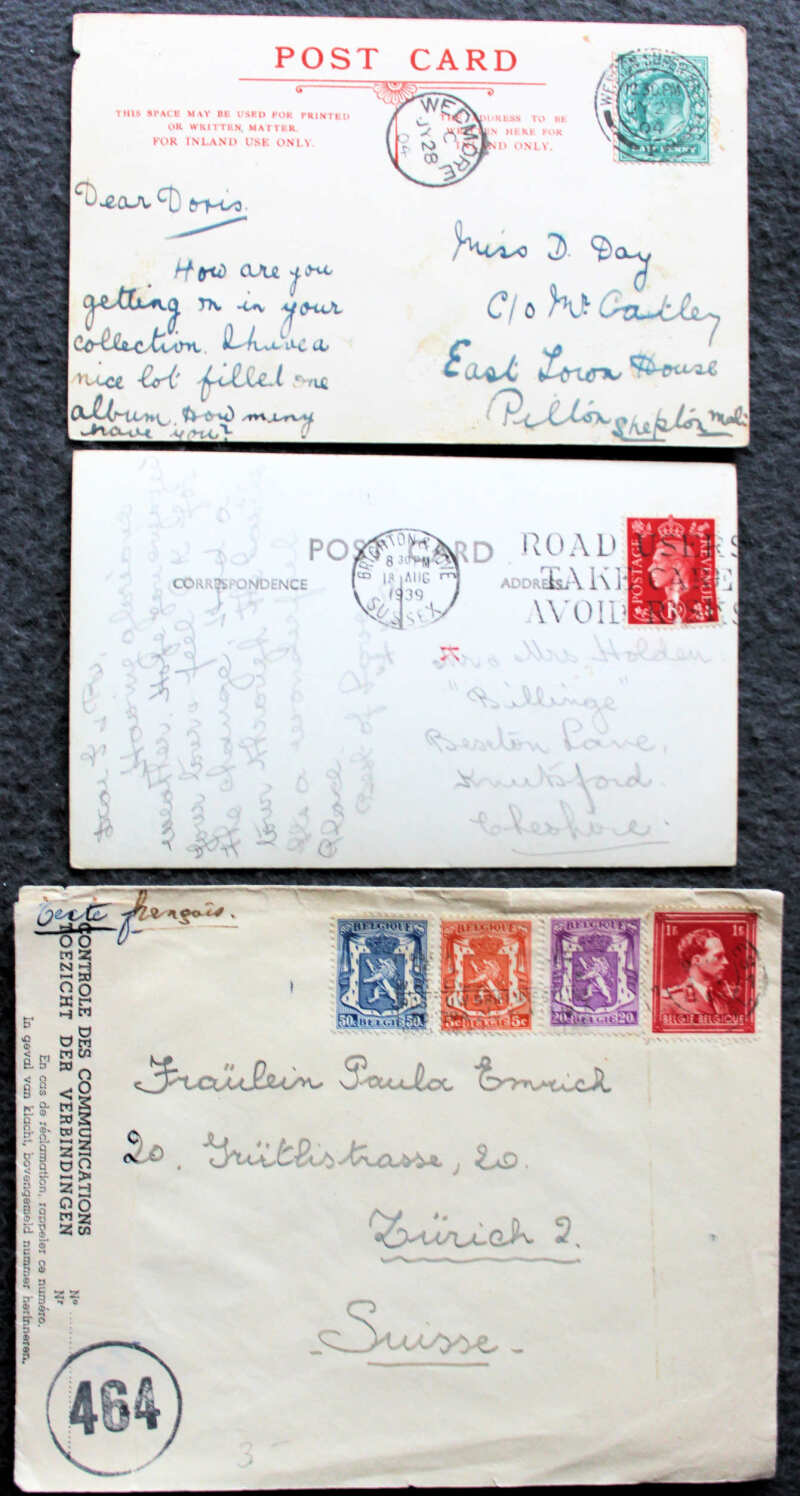 POST CARD
THIS SPACE MAY BE USED FOR PRINTED
OR WRITTEN, MATTER.
FOR INLAND USE ONLY.
THE ADDRESS TO BE
WRITTEN HERE FOR
INLAND ONLY.
WEDMORE
C
JY 28
04
12.30 PM
JY 28
04
HALFPENNY
Dear Doris.
How are you
getting on in your
collection. I have a
nice lot filled one
album. How meny
have you?
Miss D. Day
C/o Mr
East Town House
Pilton Shepton Mal
POST CARD
CORRESPONDENCE
ADDRESS
BRIGHTON & HOVE
8 30 PM
18 AUG
1939
SUSSEX
ROAD USERS
TAKE CARE
AVOID RISKS
POSTAGE
REVENUE
1D
Having glorious
weather. Hope
your tours feel
the change,
tour through
Its a wonderful
place.
Best of
Mrs Holden
"Billinge"
Bexton Lane,
Knutsford.
Cheshire.
Texte français.
CONTROLE DES COMMUNICATIONS
TOEZICHT DER VERBINDINGEN
No
Nr
En cas de réclamation, rappeler ce numéro.
In geval van klacht, bovengemeld nummer herinneren.
464
BELGIQUE
50c BELGIE 50c
BELGIQUE
5c BELGIE 5c
BELGIQUE
20c BELGIE 20c
1F 1F
BELGIE BELGIQUE
Fräulein Paula Emrich
20. Grütlistrasse, 20.
Zürich 2.
- Suisse -
3-